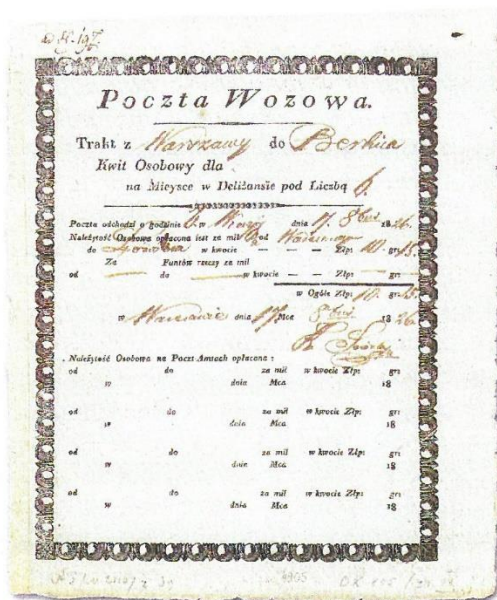 Poczta Wozowa.
Trakt z Warszawy do Berlina
Kwit Osobowy dla
na Mieysce w Deliżansie pod Liczbą 6.
Poczta odchodzi o godzinie w dnia 17. 8bra 1826.
Należytość Osobowa opłacona iest za mil od
do w kwocie — — Złp: 10. gr: 15.
Za Funtów rzeczy za mil
od — do — w kwocie — — Złp: — gr: —
w Ogóle Złp: 10. gr: 15.
w Warszawie dnia 17 Mca 8bra 1826.
Należytość Osobowa na Poczt Amtach opłacona:
od do za mil w kwocie Złp: gr:
w dnia Mca 18
od do za mil w kwocie Złp: gr:
w dnia Mca 18
od do za mil w kwocie Złp: gr:
w dnia Mca 18
od do za mil w kwocie Złp: gr:
w dnia Mca 18